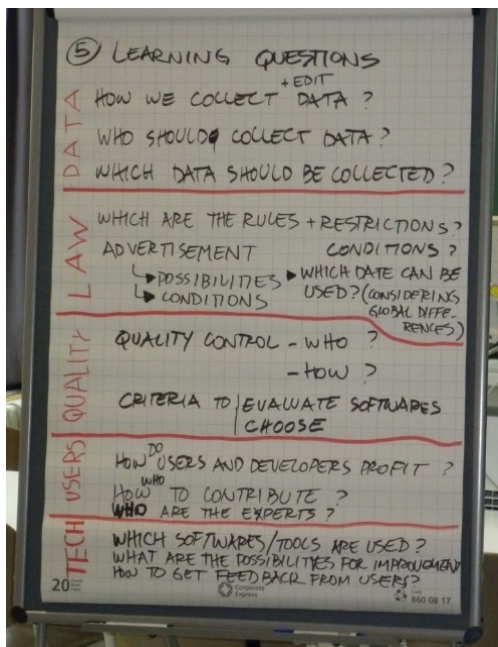 ⑤ LEARNING QUESTIONS
+ EDIT
HOW WE COLLECT DATA ?
WHO SHOULD COLLECT DATA?
WHICH DATA SHOULD BE COLLECTED?
DATA
WHICH ARE THE RULES + RESTRICTIONS?
CONDITIONS?
ADVERTISEMENT
↳ POSSIBILITIES
↳ CONDITIONS
▸ WHICH DATE CAN BE
USED? (CONSIDERING
GLOBAL DIFFE-
RENCES)
LAW
QUALITY CONTROL - WHO ?
- HOW ?
CRITERIA TO EVALUATE SOFTWARES
CHOOSE
QUALITY
HOW DO USERS AND DEVELOPERS PROFIT ?
WHO
HOW TO CONTRIBUTE ?
WHO ARE THE EXPERTS ?
USERS
WHICH SOFTWARES/TOOLS ARE USED?
WHAT ARE THE POSSIBILITYES FOR IMPROVMENT
HOW TO GET FEEDBACK FROM USERS?
TECH
20
Corporate
Express
860 08 17